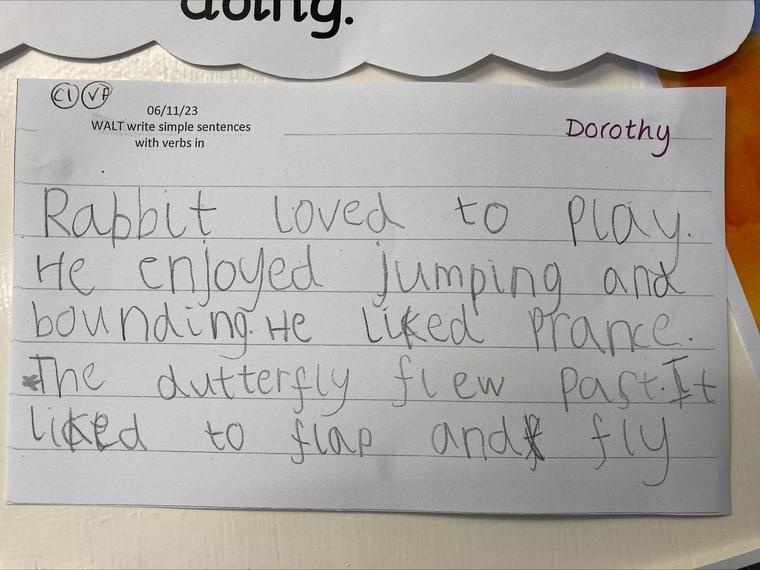 doing.
CI VF
06/11/23
WALT write simple sentences
with verbs in
Dorothy
Rabbit loved to play.
He enjoyed jumping and
bounding. He liked prance.
The dutterfly flew past. It
liked to flap and fly